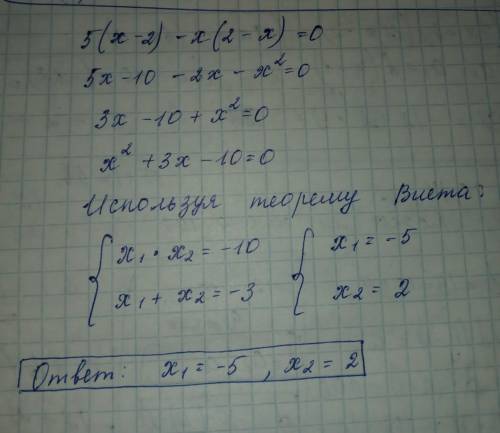 5(x-2) - x(2-x) = 0
5x-10 - 2x - x²=0
3x - 10 + x²=0
x² + 3x - 10=0
Используя теорему Виета:
{ x₁ · x₂ = -10 { x₁ = -5
x₁ + x₂ = -3 x₂ = 2
Ответ: x₁ = -5 , x₂ = 2